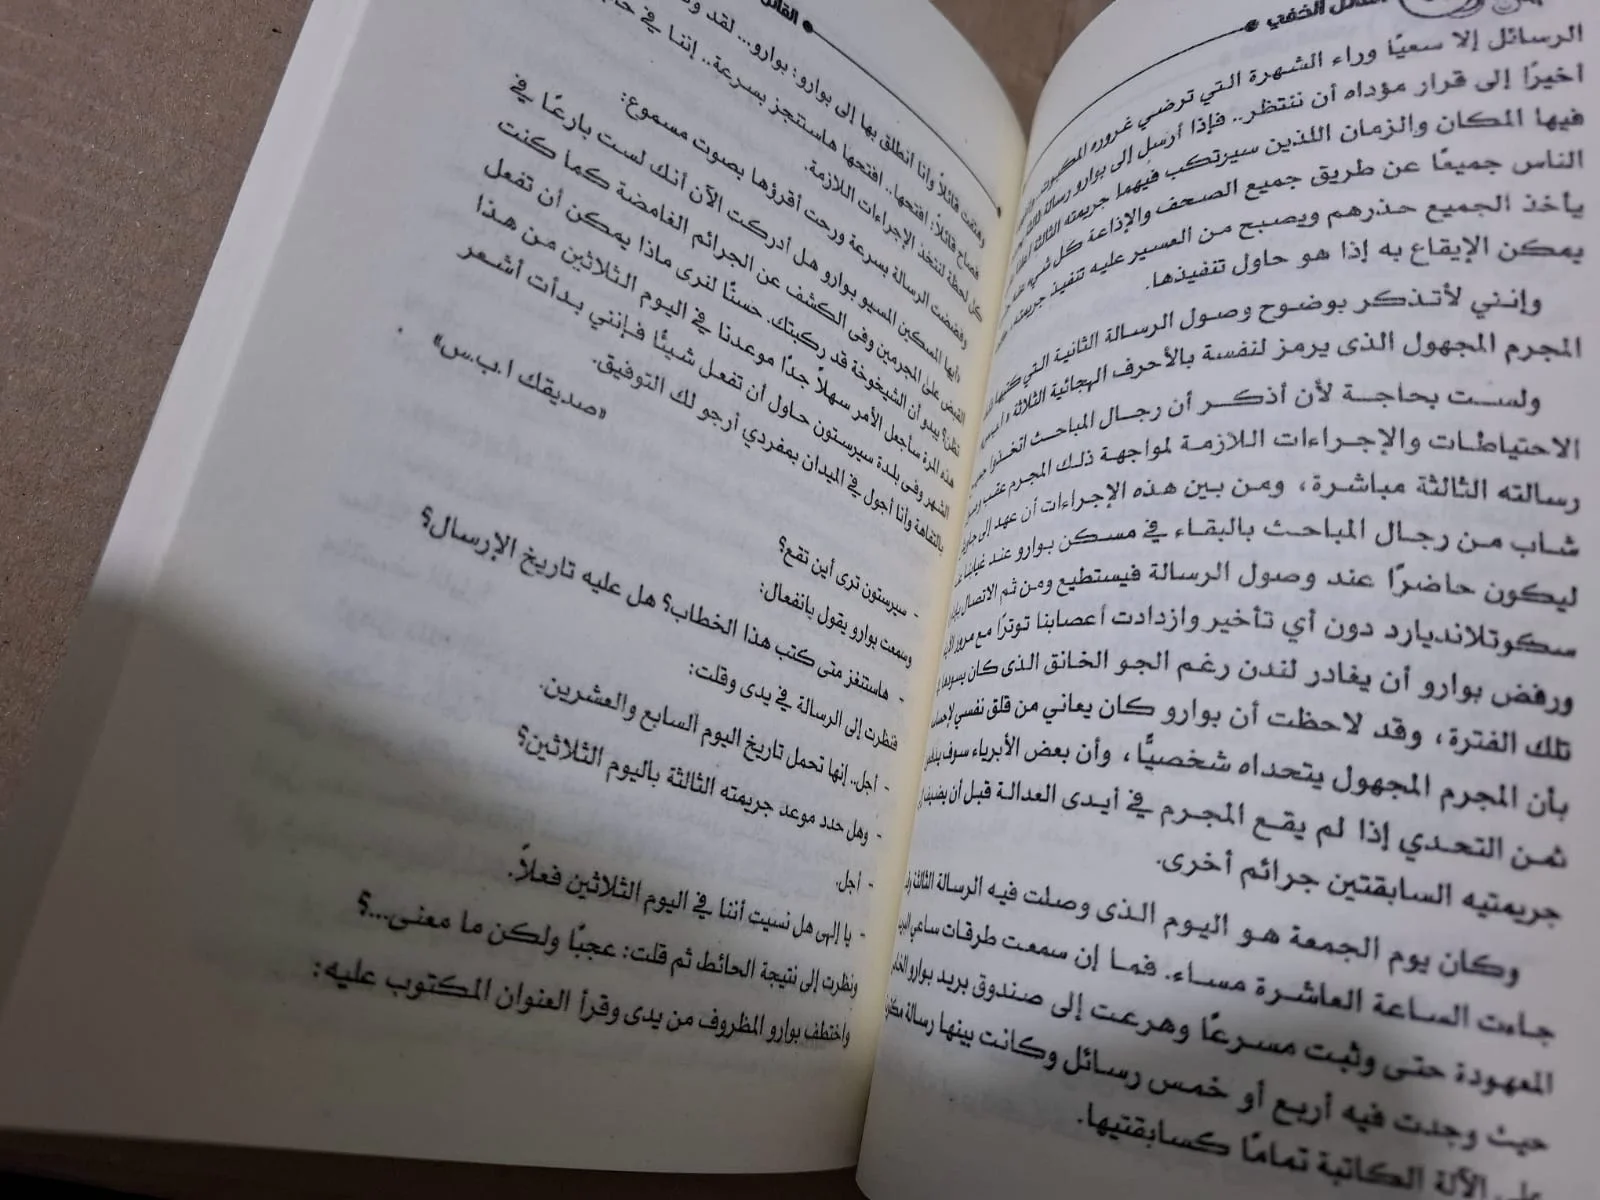 القاتل الخفي
الرسائل إلا سعيًا وراء الشهرة التي ترضي غروره
أخيرًا إلى قرار مؤداه أن ننتظر.. فإذا أرسل إلى بوارو رسالة ثالثة
فيها المكان والزمان اللذين سيرتكب فيهما جريمته الثالثة
الناس جميعًا عن طريق جميع الصحف والإذاعة كل شيء
يأخذ الجميع حذرهم ويصبح من العسير عليه تنفيذ جريمته
يمكن الإيقاع به إذا هو حاول تنفيذها.
وإنني لأتذكر بوضوح وصول الرسالة الثانية التي
المجرم المجهول الذى يرمز لنفسة بالأحرف الهجائية الثلاثة
ولست بحاجة لأن أذكر أن رجال المباحث اتخذوا
الاحتياطات والإجراءات اللازمة لمواجهة ذلك المجرم عقب
رسالته الثالثة مباشرة، ومن بين هذه الإجراءات أن عهد إلى
شاب من رجال المباحث بالبقاء في مسكن بوارو عند غيابنا
ليكون حاضرًا عند وصول الرسالة فيستطيع ومن ثم الاتصال
سكوتلانديارد دون أي تأخير وازدادت أعصابنا توترًا مع مرور
ورفض بوارو أن يغادر لندن رغم الجو الخانق الذى كان
تلك الفترة، وقد لاحظت أن بوارو كان يعاني من قلق نفسي
بأن المجرم المجهول يتحداه شخصيًّا، وأن بعض الأبرياء سوف
ثمن التحدي إذا لم يقع المجرم في أيدى العدالة قبل أن يضيف
جريمتيه السابقتين جرائم أخرى.
وكان يوم الجمعة هو اليوم الذى وصلت فيه الرسالة الثالثة
جاءت الساعة العاشرة مساء. فما إن سمعت طرقات ساعي
المعهودة حتى وثبت مسرعًا وهرعت إلى صندوق بريد بوارو
حيث وجدت فيه أربع أو خمس رسائل وكانت بينها رسالة
على الآلة الكاتبة تمامًا كسابقتيها.
وهتفت قائلاً وأنا أنطلق بها إلى بوارو: بوارو... لقد
فصاح قائلاً: افتحها.. افتحها هاستنجز بسرعة.. إننا في
كل لحظة لنتخذ الإجراءات اللازمة.
وفضضت الرسالة بسرعة ورحت أقرؤها بصوت مسموع:
«أيها المسكين المسيو بوارو هل أدركت الآن أنك لست بارعًا في
القبض على المجرمين وفى الكشف عن الجرائم الغامضة كما كنت
تظن؟ يبدو أن الشيخوخة قد ركبتك. حسنًا لنرى ماذا يمكن أن تفعل
هذه المرة سأجعل الأمر سهلاً جدًا موعدنا في اليوم الثلاثين من هذا
الشهر وفى بلدة سيرستون حاول أن تفعل شيئًا فإنني بدأت أشعر
بالتفاهة وأنا أجول في الميدان بمفردي أرجو لك التوفيق.
«صديقك ا.ب.س»
- سيرستون ترى أين تقع؟
وسمعت بوارو يقول بانفعال:
- هاستنغز متى كتب هذا الخطاب؟ هل عليه تاريخ الإرسال؟
فنظرت إلى الرسالة في يدى وقلت:
- أجل.. إنها تحمل تاريخ اليوم السابع والعشرين.
- وهل حدد موعد جريمته الثالثة باليوم الثلاثين؟
- أجل.
- يا إلهى هل نسيت أننا في اليوم الثلاثين فعلاً.
ونظرت إلى نتيجة الحائط ثم قلت: عجبًا ولكن ما معنى...؟
واختطف بوارو المظروف من يدى وقرأ العنوان المكتوب عليه: